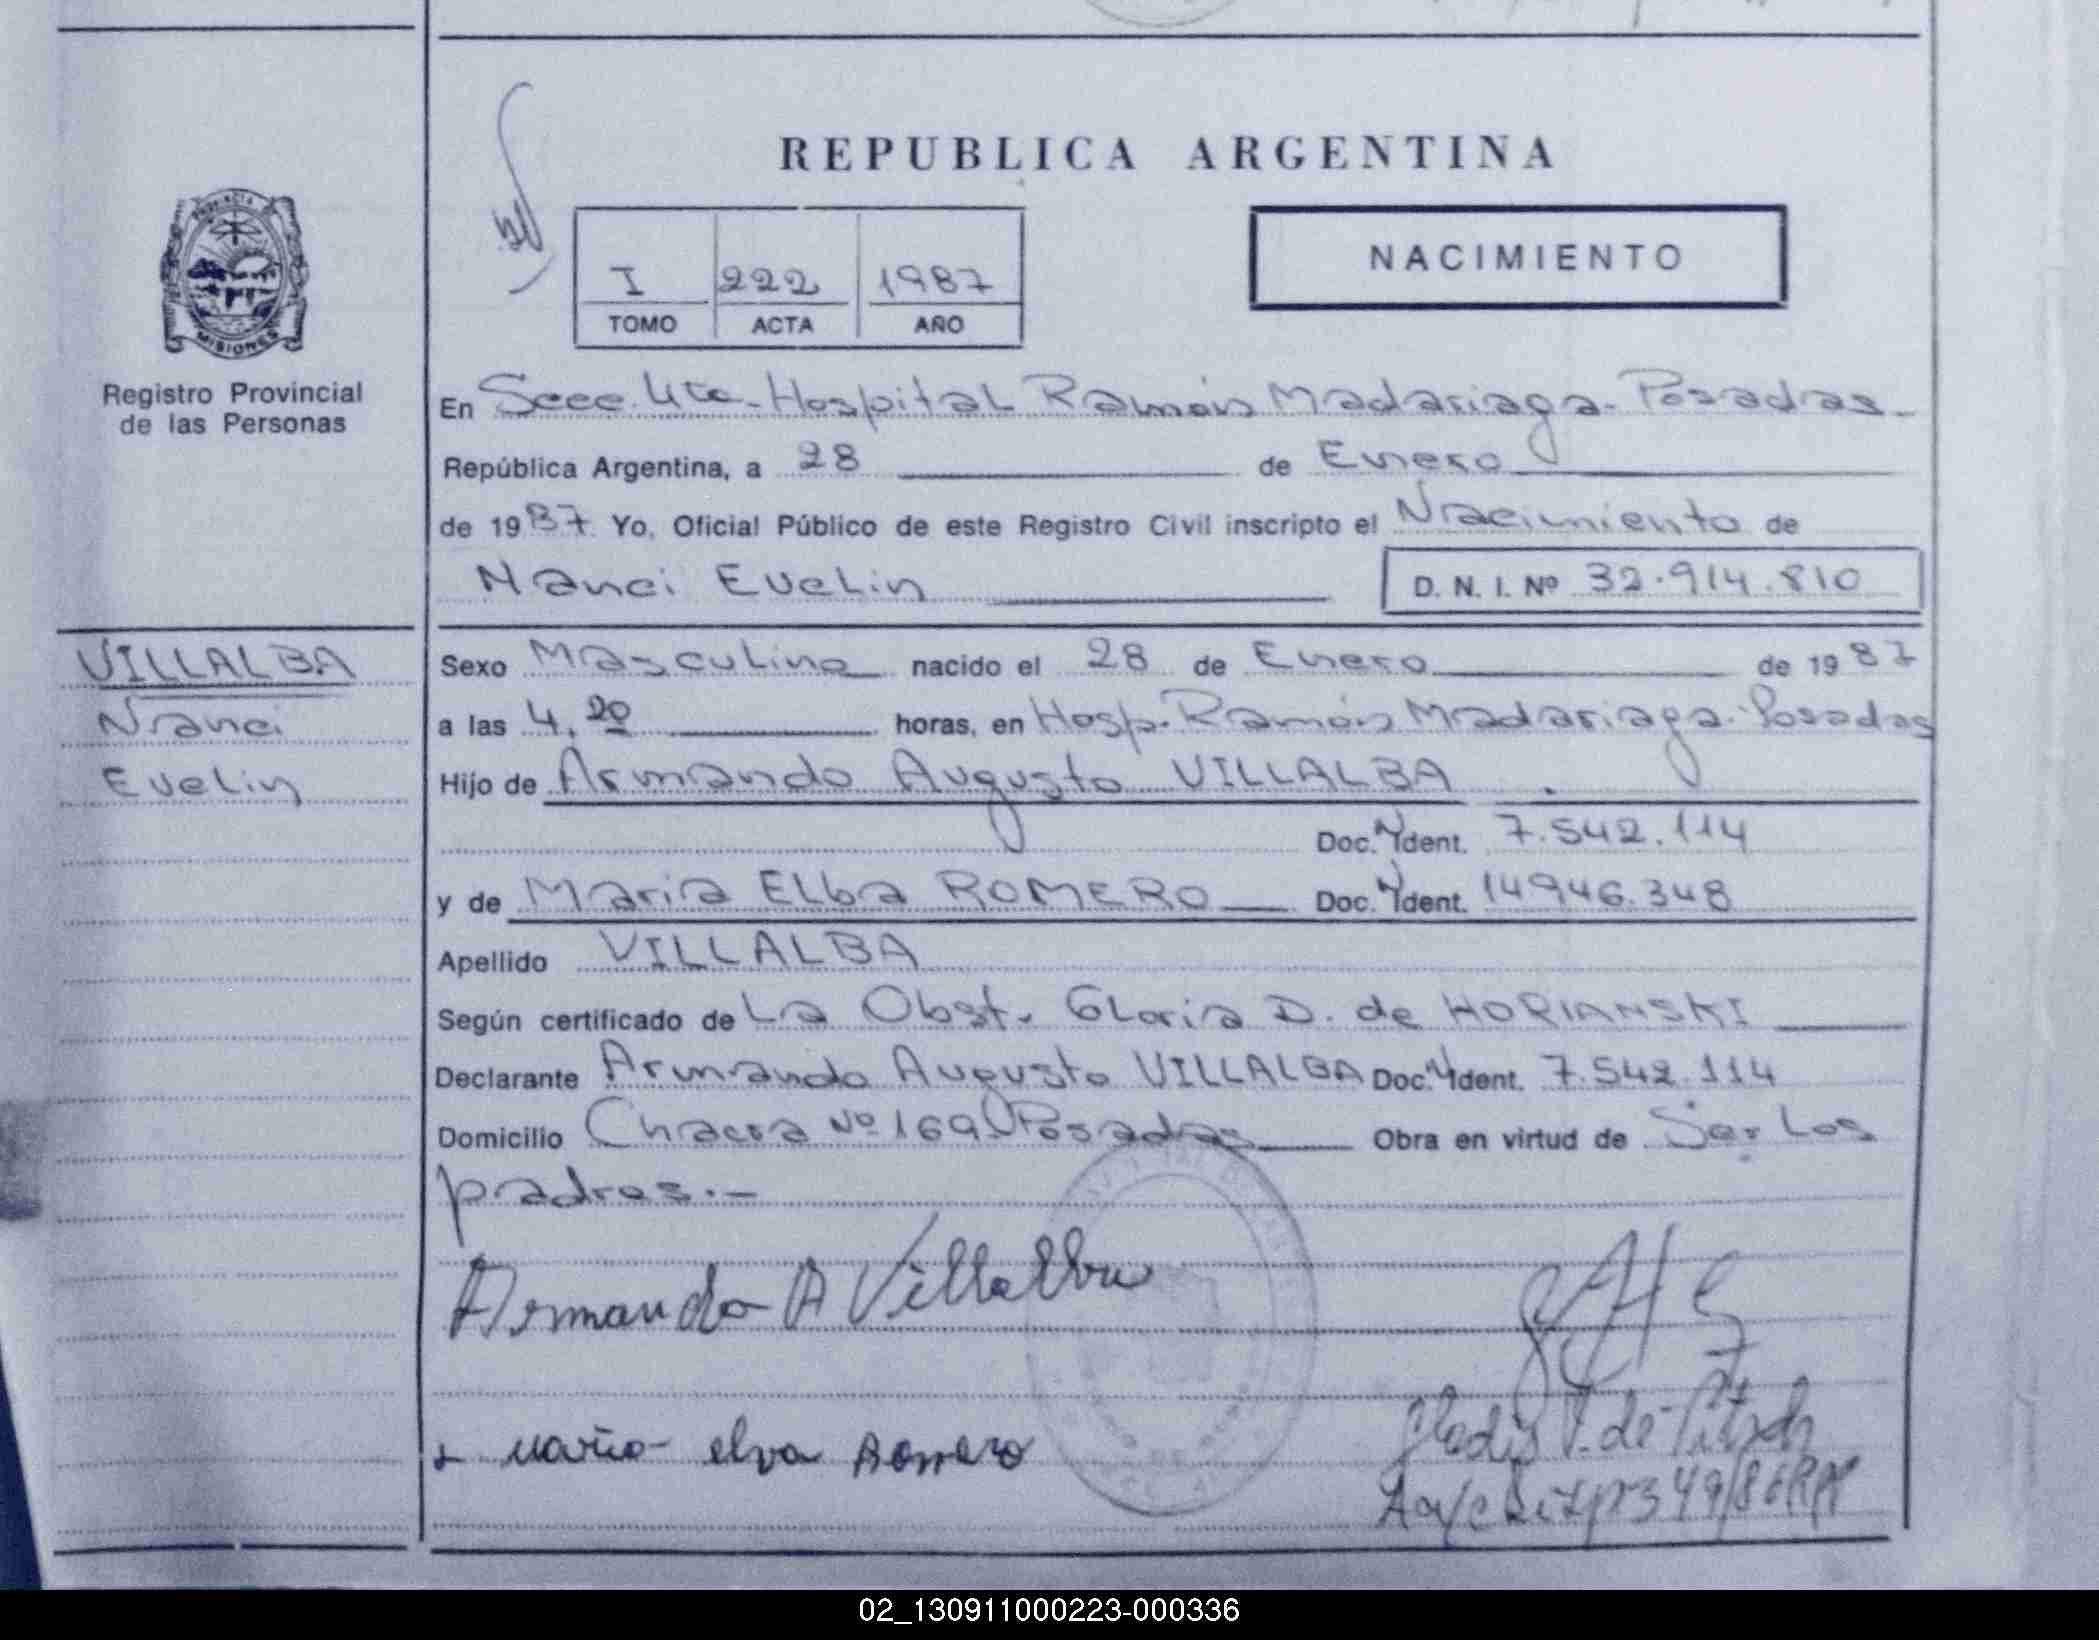 REPUBLICA ARGENTINA
PROVINCIA
MISIONES
Registro Provincial
de las Personas
I 222 1987
TOMO ACTA AÑO
NACIMIENTO
En Secc. 4ta - Hospital Ramón Madariaga - Posadas -
República Argentina, a 28 de Enero
de 1987 Yo, Oficial Público de este Registro Civil inscripto el Nacimiento de
Nanci Evelin D. N. I. Nº 32.914.810
VILLALBA
Nanci
Evelin
Sexo Masculino nacido el 28 de Enero de 1987
a las 4,20 horas, en Hosp. Ramón Madariaga - Posadas
Hijo de Armando Augusto VILLALBA
Doc. Ident. 7.542.114
y de Maria Elba ROMERO Doc. Ident. 14946.348
Apellido VILLALBA
Según certificado de La Obst. Gloria D. de HORIANSKI
Declarante Armando Augusto VILLALBA Doc. Ident. 7.542.114
Domicilio Chacra Nº 169 - Posadas Obra en virtud de Ser Los
padres.-
Armando A Villalba
maria elva Romero
Gladis de
349/86
02_130911000223-000336